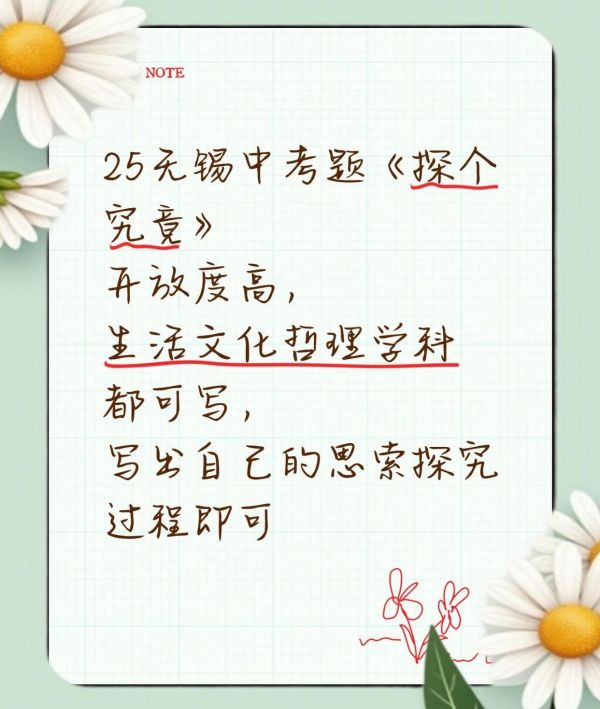 NOTE
25无锡中考题《探个
究竟》
开放度高，
生活文化哲理学科
都可写，
写出自己的思索探究
过程即可